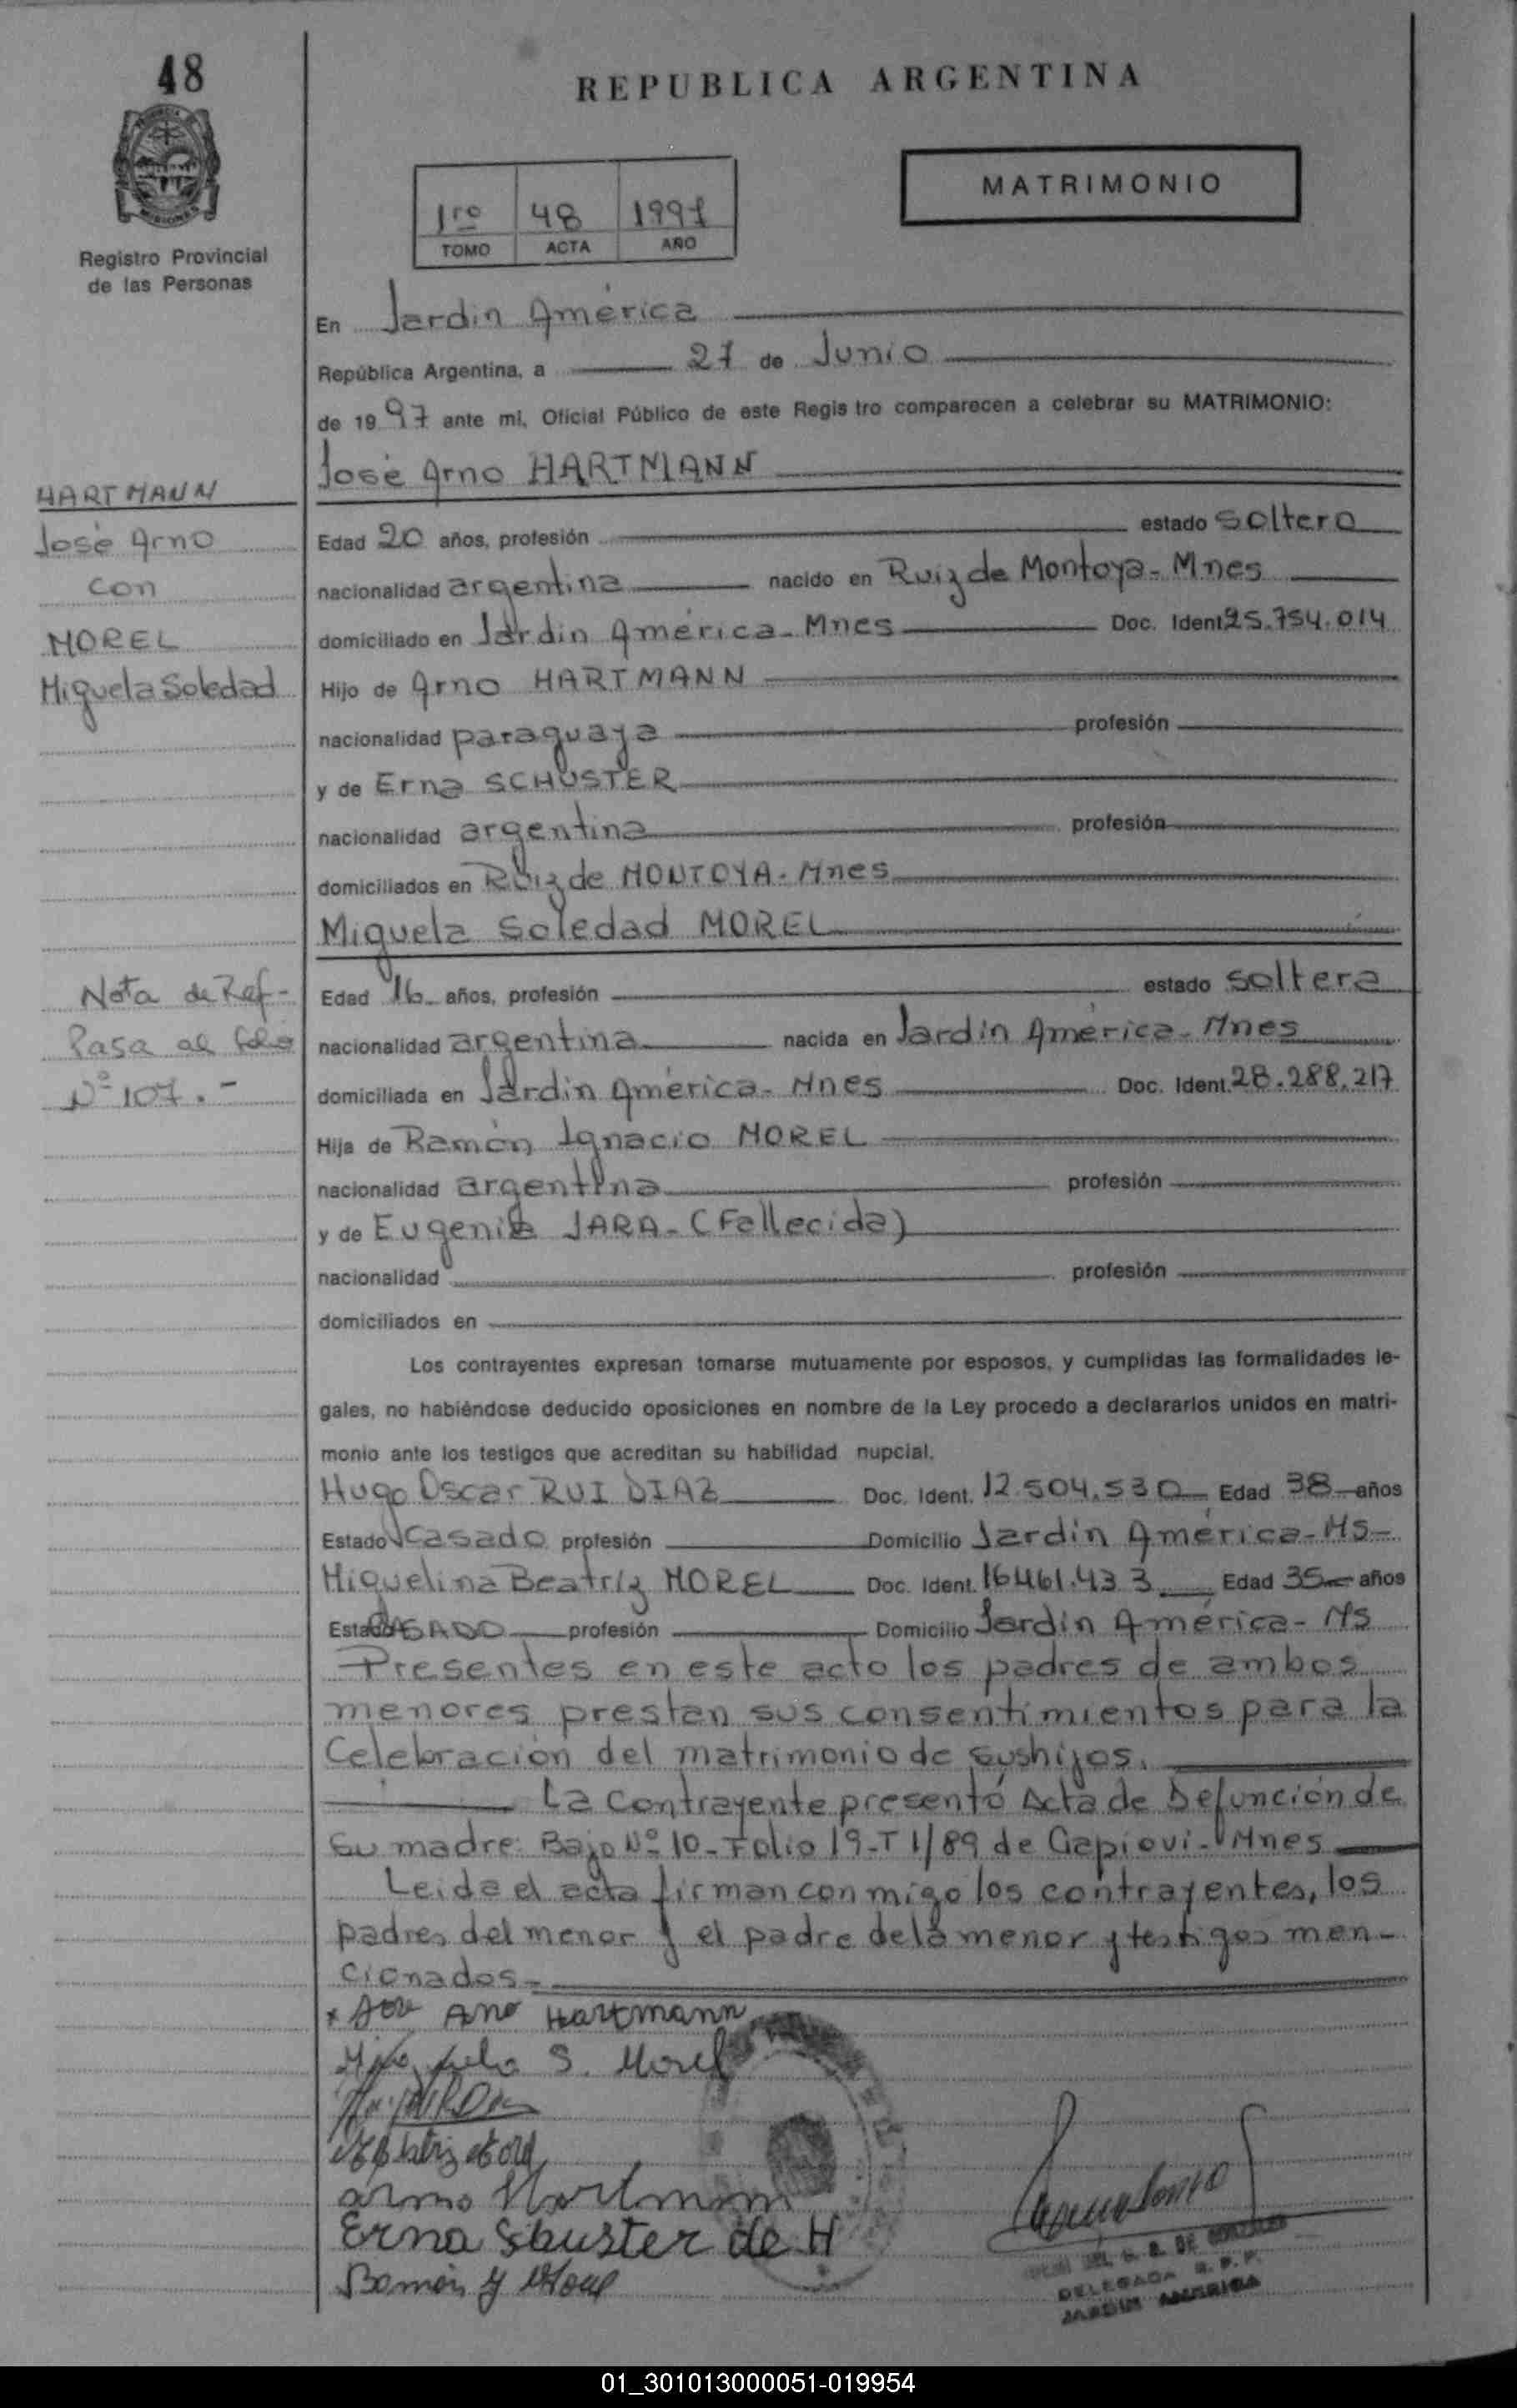 48
REPUBLICA ARGENTINA
MATRIMONIO
1ro 48 1997
TOMO ACTA AÑO
Registro Provincial
de las Personas
En Jardín América
República Argentina, a 27 de Junio
de 1997 ante mi, Oficial Público de este Registro comparecen a celebrar su MATRIMONIO:
José Arno HARTMANN
HARTMANN
José Arno
con
MOREL
Miguela Soledad
Edad 20 años, profesión estado soltero
nacionalidad argentina nacido en Ruiz de Montoya - Mnes
domiciliado en Jardín América - Mnes Doc. Ident. 25.754.014
Hijo de Arno HARTMANN
nacionalidad paraguaya profesión
y de Erna SCHUSTER
nacionalidad argentina profesión
domiciliados en Ruiz de MONTOYA - Mnes
Miguela Soledad MOREL
Nota de Ref-
Pasa al folio
Nº 107.-
Edad 16 años, profesión estado soltera
nacionalidad argentina nacida en Jardín América - Mnes
domiciliada en Jardín América - Mnes Doc. Ident. 28.288.217
Hija de Ramón Ignacio MOREL
nacionalidad argentina profesión
y de Eugenia JARA - (Fallecida)
nacionalidad profesión
domiciliados en
Los contrayentes expresan tomarse mutuamente por esposos, y cumplidas las formalidades le-
gales, no habiéndose deducido oposiciones en nombre de la Ley procedo a declararlos unidos en matri-
monio ante los testigos que acreditan su habilidad nupcial.
Hugo Oscar RUI DIAZ Doc. Ident. 12.504.530 Edad 38 años
Estado casado profesión Domicilio Jardín América - MS-
Miguelina Beatriz MOREL Doc. Ident. 16461.433 Edad 35 años
Estado CASADO profesión Domicilio Jardín América - MS
Presentes en este acto los padres de ambos
menores prestan sus consentimientos para la
Celebración del matrimonio de sus hijos.
La contrayente presentó Acta de Defunción de
su madre: Bajo Nº 10 - Folio 19 - T 1/89 de Capioví - Mnes
Leída el acta firman conmigo los contrayentes, los
padres del menor y el padre de la menor y testigos men-
cionados.-
Arno Hartmann
S. Morel
arno Hartmann
Erna Schuster de H
Ramón Y Morel
DELEGADA R. P. P.
JARDIN AMERICA
01_301013000051-019954